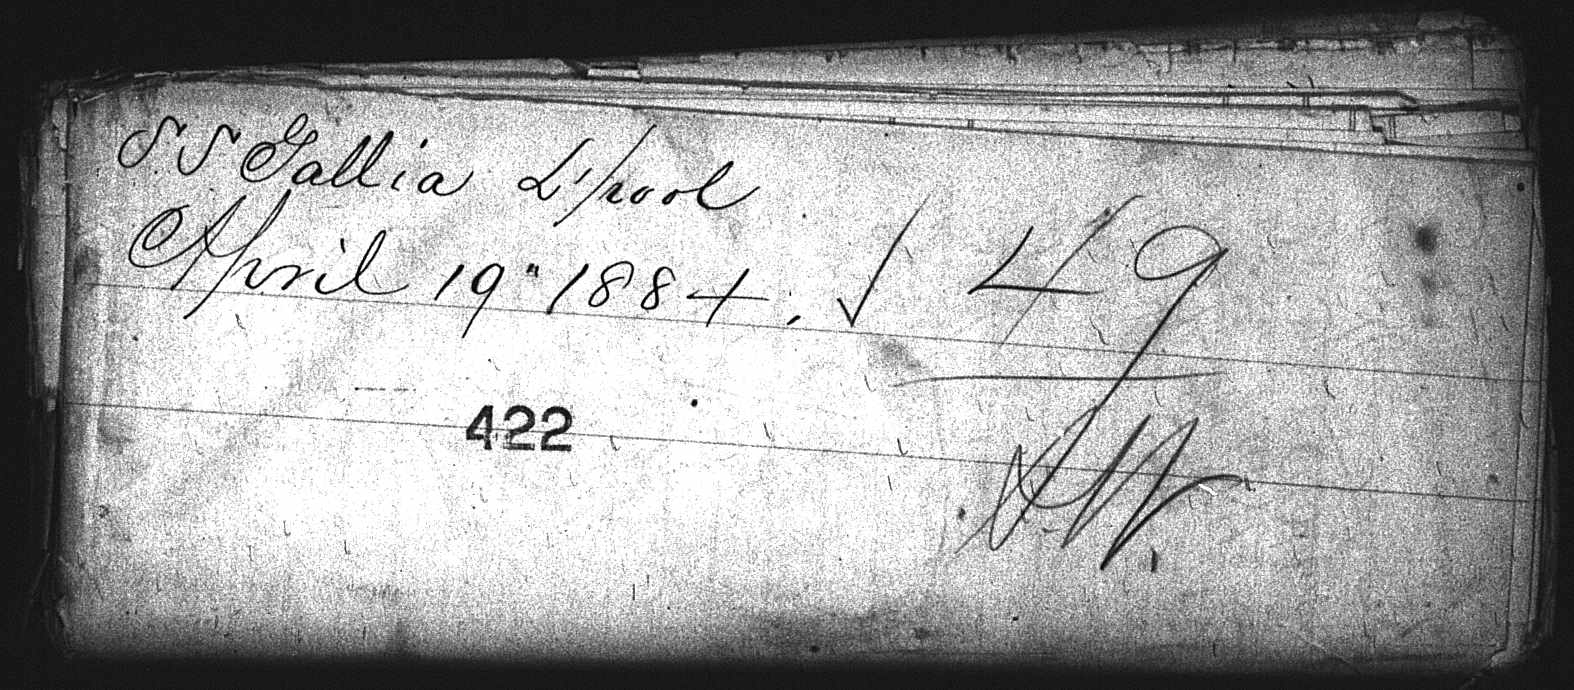 S.S Gallia L'pool
April 19" 1884. √ 49
422